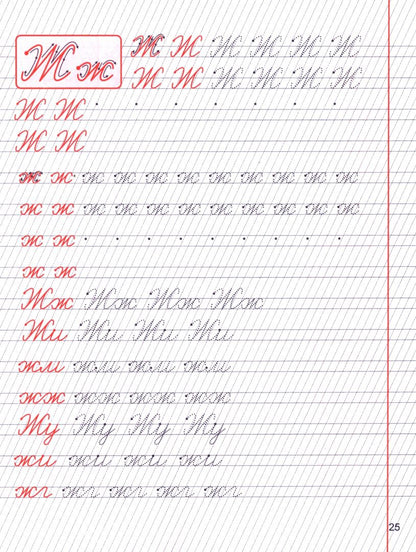 Жж Ж Ж Ж Ж Ж Ж
Ж Ж Ж Ж Ж Ж
Ж Ж
Ж Ж
ж ж ж ж ж ж ж ж ж ж ж
ж ж ж ж ж ж ж ж ж ж ж
ж ж
ж ж
Жж Жж Жж Жж
Жи Жи Жи Жи
жм жм жм жм
жж жж жж жж
Жу Жу Жу Жу
жи жи жи жи
жг жг жг жг жг
25